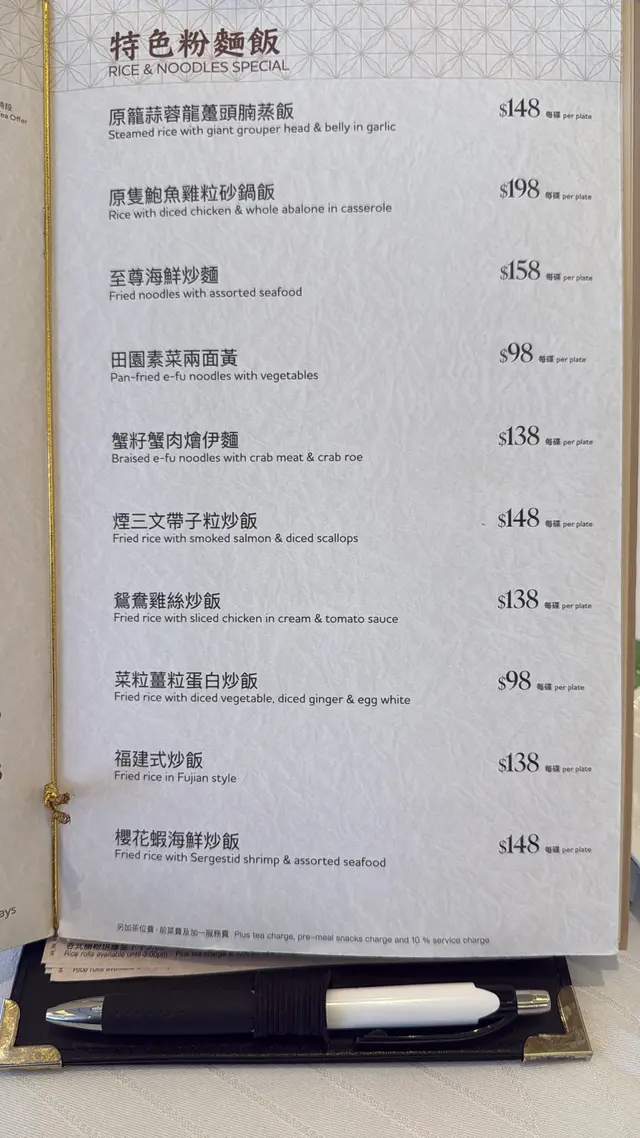 特色粉麵飯
RICE & NOODLES SPECIAL
原籠蒜蓉龍躉頭腩蒸飯 $148 每碟 per plate
Steamed rice with giant grouper head & belly in garlic
原隻鮑魚雞粒砂鍋飯 $198 每碟 per plate
Rice with diced chicken & whole abalone in casserole
至尊海鮮炒麵 $158 每碟 per plate
Fried noodles with assorted seafood
田園素菜兩面黃 $98 每碟 per plate
Pan-fried e-fu noodles with vegetables
蟹籽蟹肉燴伊麵 $138 每碟 per plate
Braised e-fu noodles with crab meat & crab roe
煙三文帶子粒炒飯 $148 每碟 per plate
Fried rice with smoked salmon & diced scallops
鴛鴦雞絲炒飯 $138 每碟 per plate
Fried rice with sliced chicken in cream & tomato sauce
菜粒薑粒蛋白炒飯 $98 每碟 per plate
Fried rice with diced vegetable, diced ginger & egg white
福建式炒飯 $138 每碟 per plate
Fried rice in Fujian style
櫻花蝦海鮮炒飯 $148 每碟 per plate
Fried rice with Sergestid shrimp & assorted seafood
另加茶位費，前菜費及加一服務費 Plus tea charge, pre-meal snacks charge and 10 % service charge
時段
ea Offer
ays
Rice rolls available until 3:00pm
Rice rolls available